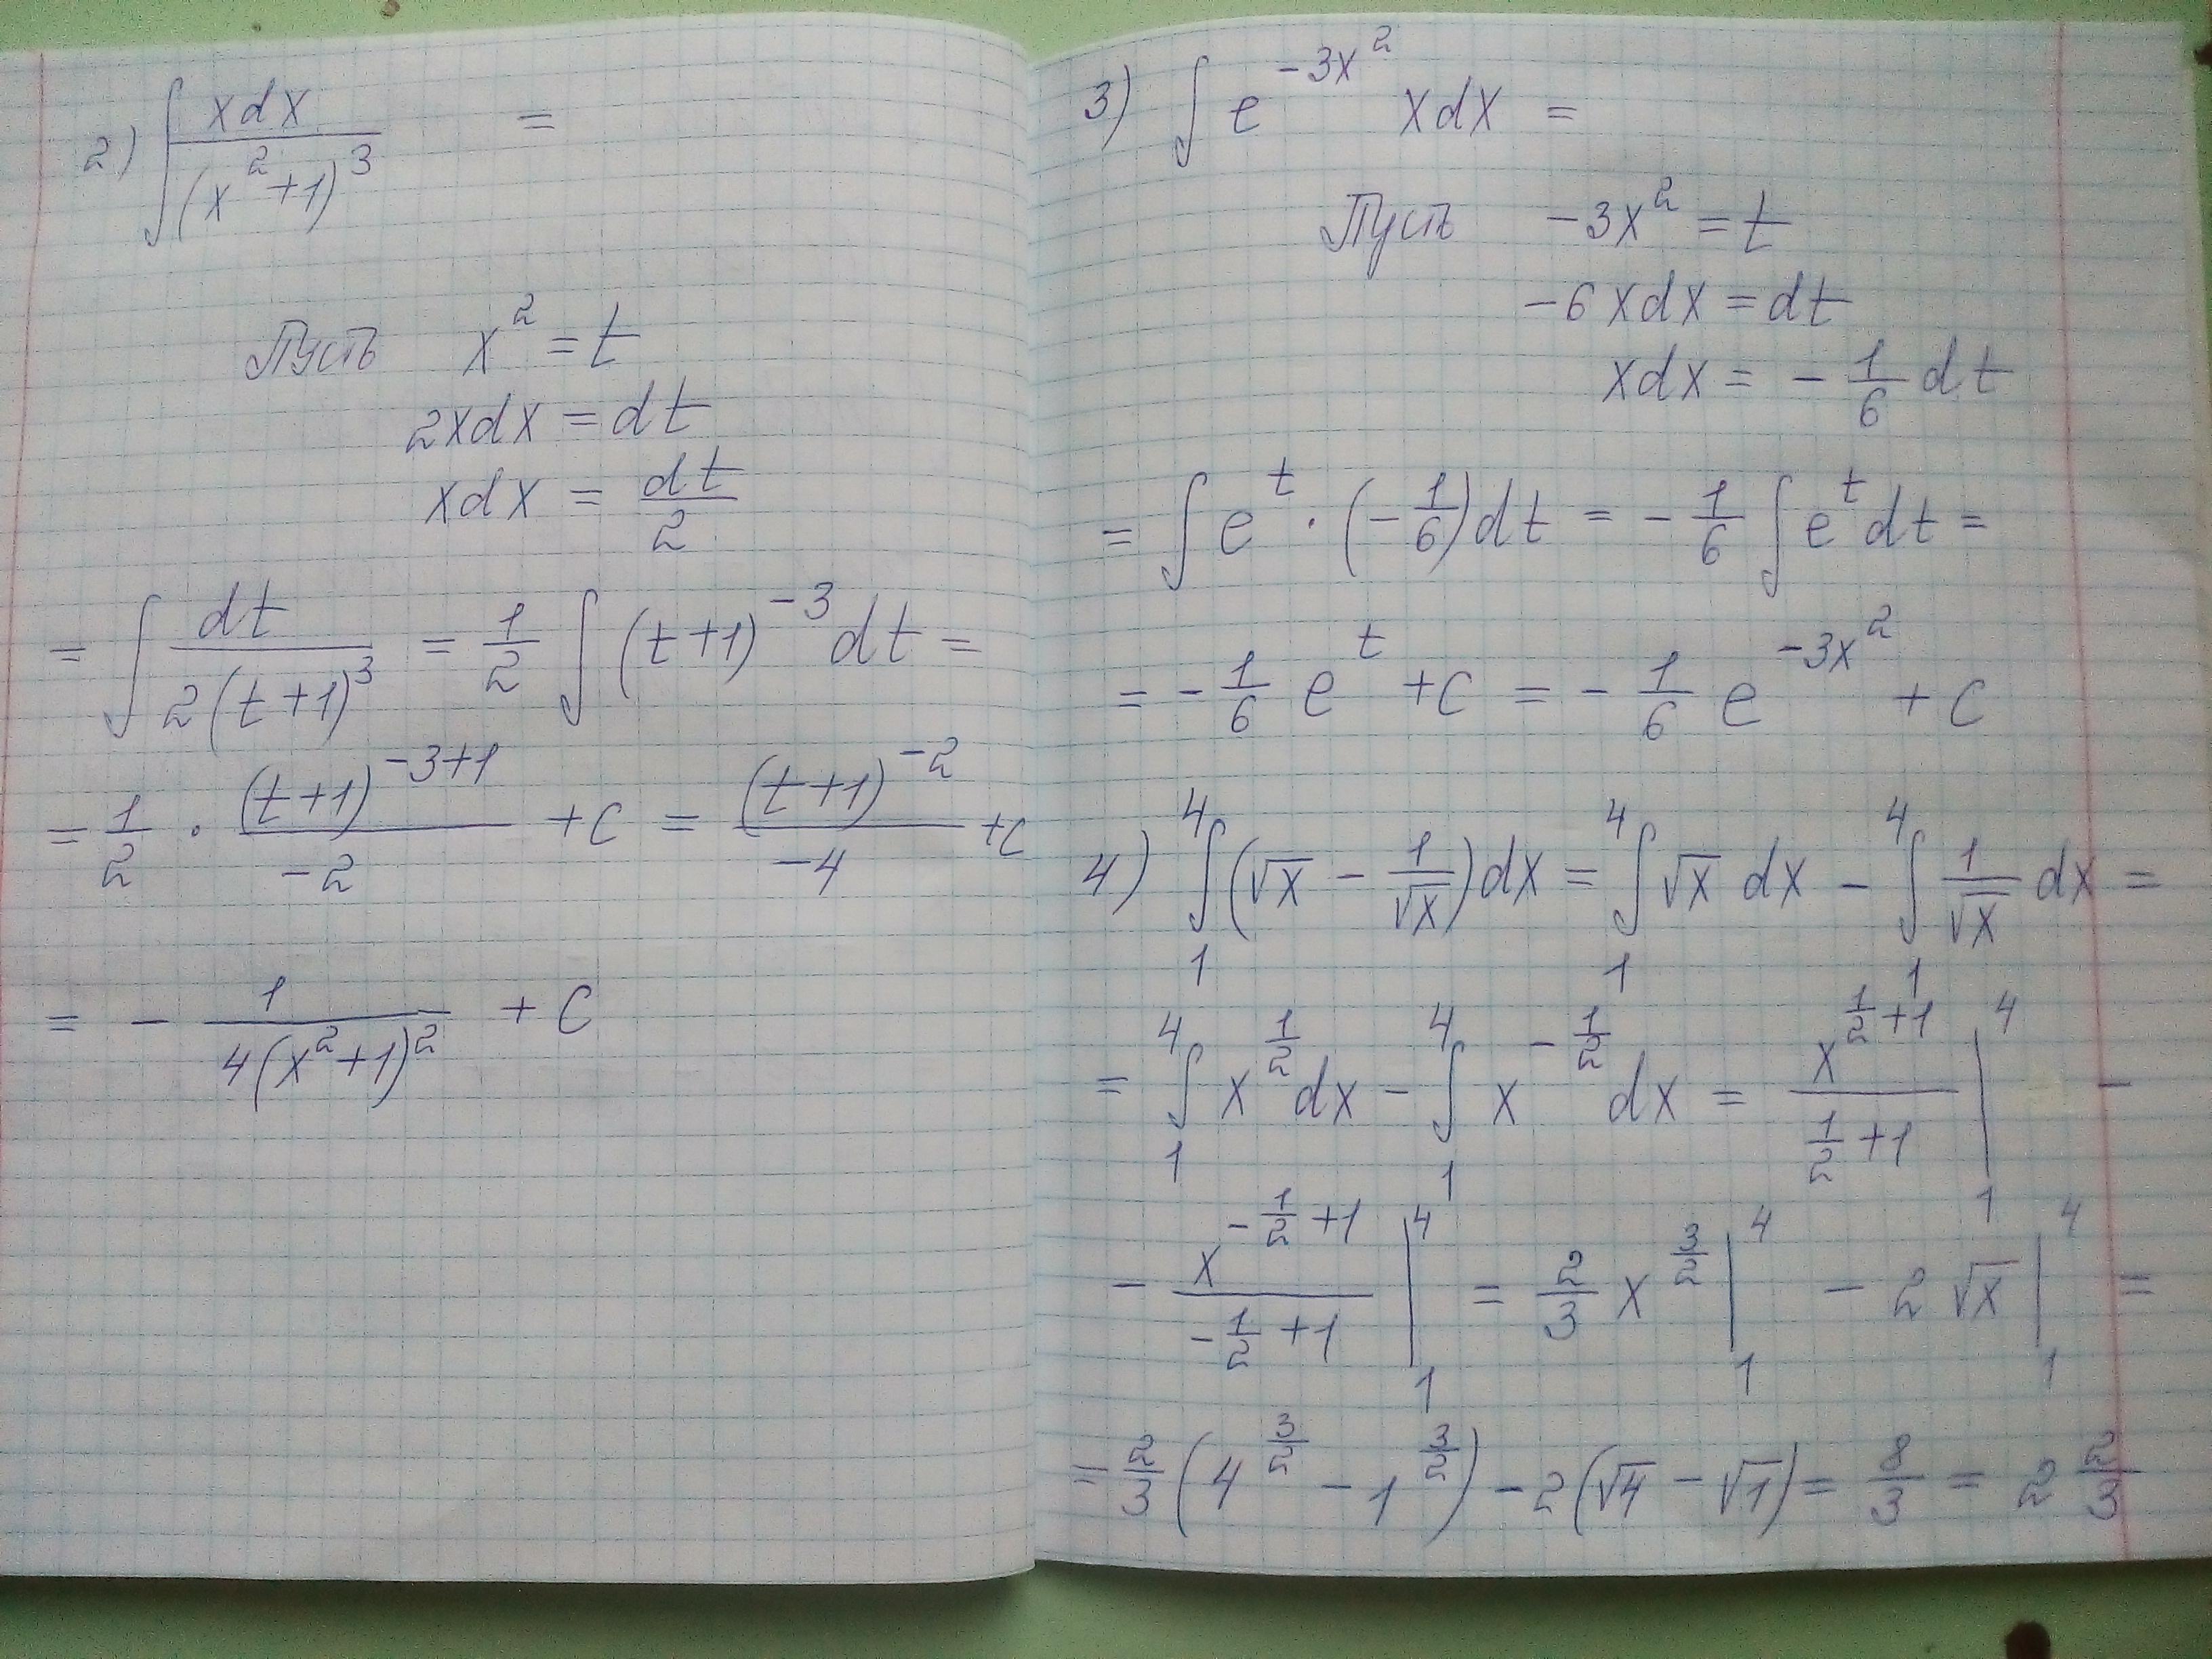 2) ∫ xdx / (x² + 1)³ =
Пусть x² = t
2xdx = dt
xdx = dt / 2
= ∫ dt / 2(t+1)³ = 1/2 ∫ (t+1)⁻³ dt =
= 1/2 · (t+1)⁻³⁺¹ / -2 + C = (t+1)⁻² / -4 + C
= - 1 / 4(x²+1)² + C
3) ∫ e^(-3x²) xdx =
Пусть -3x² = t
-6xdx = dt
xdx = - 1/6 dt
= ∫ e^t · (- 1/6) dt = - 1/6 ∫ e^t dt =
= - 1/6 e^t + C = - 1/6 e^(-3x²) + C
4) ∫₁⁴ (√x - 1/√x) dx = ∫₁⁴ √x dx - ∫₁⁴ 1/√x dx =
= ∫₁⁴ x^(1/2) dx - ∫₁⁴ x^(-1/2) dx = x^(1/2+1) / (1/2+1) |₁⁴ -
- x^(-1/2+1) / (-1/2+1) |₁⁴ = 2/3 x^(3/2) |₁⁴ - 2√x |₁⁴ =
= 2/3 (4^(3/2) - 1^(3/2)) - 2(√4 - √1) = 8/3 = 2 2/3